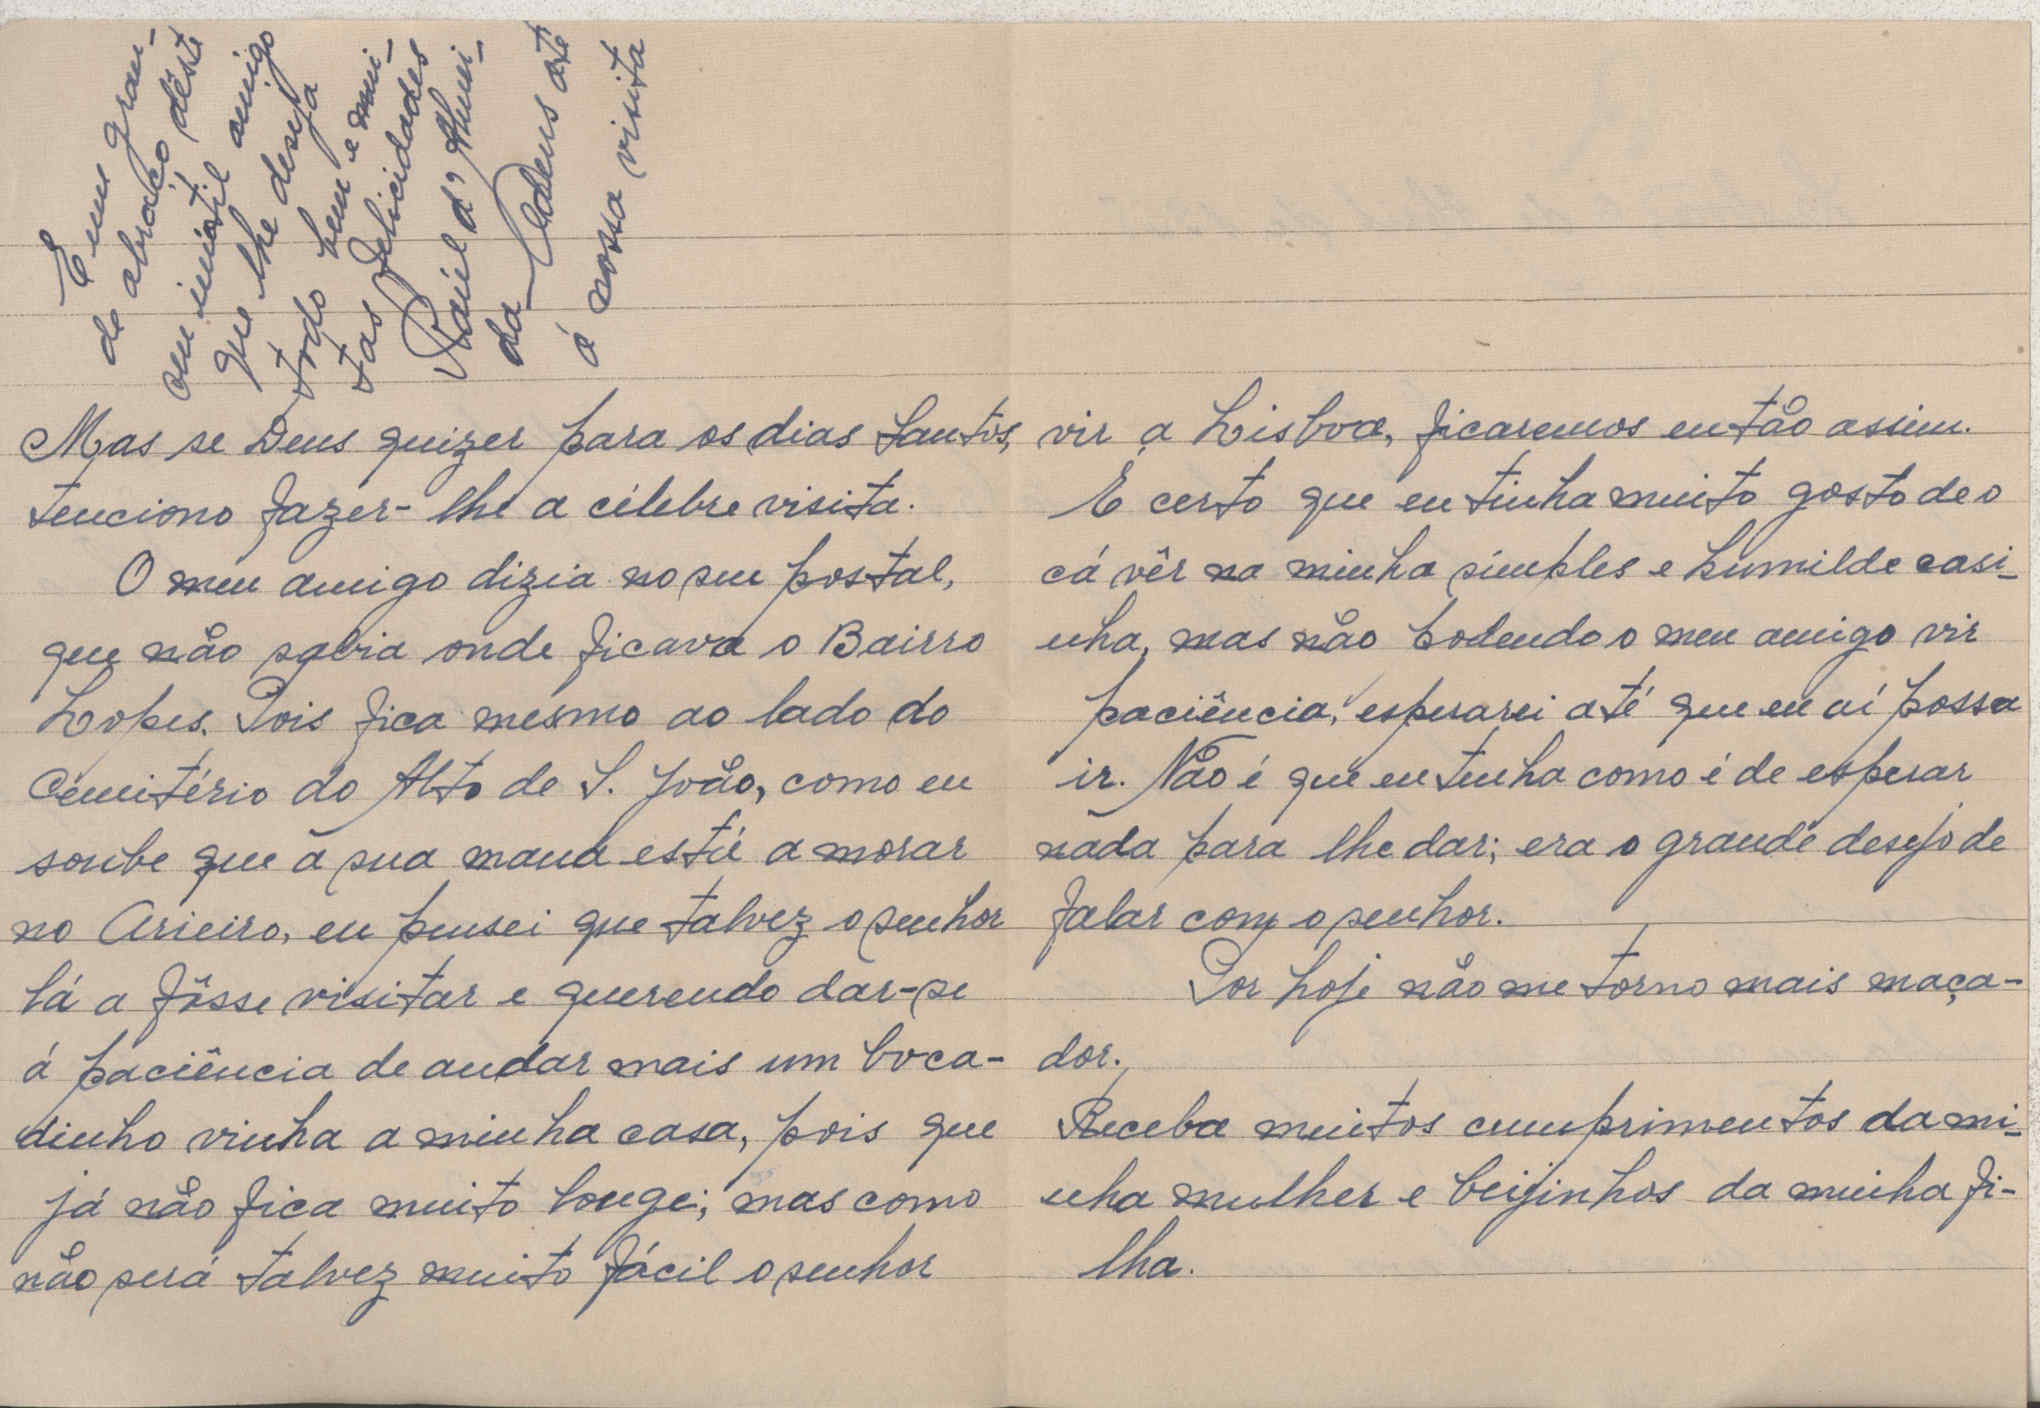 Mas se Deus quizer para os dias Santos,
tenciono fazer-lhe a célebre visita.
O meu amigo dizia no seu postal,
que não sabia onde ficava o Bairro
Lopes. Pois fica mesmo ao lado do
Cemitério do Alto de S. João, como eu
soube que a sua mana está a morar
no Arieiro, eu pensei que talvez o senhor
lá a fôsse visitar e querendo dar-se
á paciência de andar mais um boca-
dinho vinha a minha casa, pois que
já não fica muito longe; mas como
não será talvez muito fácil o senhor
vir a Lisboa, ficaremos então assim.
E certo que eu tinha muito gosto de o
cá vêr na minha simples e humilde casi-
nha, mas não podendo o meu amigo vir
paciência, esperarei até que eu aí possa
ir. Não é que eu tenha como é de esperar
nada para lhe dar; era o grande desejo de
falar com o senhor.
Por hoje não me torno mais maça-
dor.
Receba muitos cumprimentos da mi-
nha mulher e beijinhos da minha fi-
lha.
E um gran-
de abraço dêste
seu inútil amigo
que lhe deseja
todo bem e mui-
tas felicidades
Raúl d'Almei-
da - Adeus até
á nossa visita